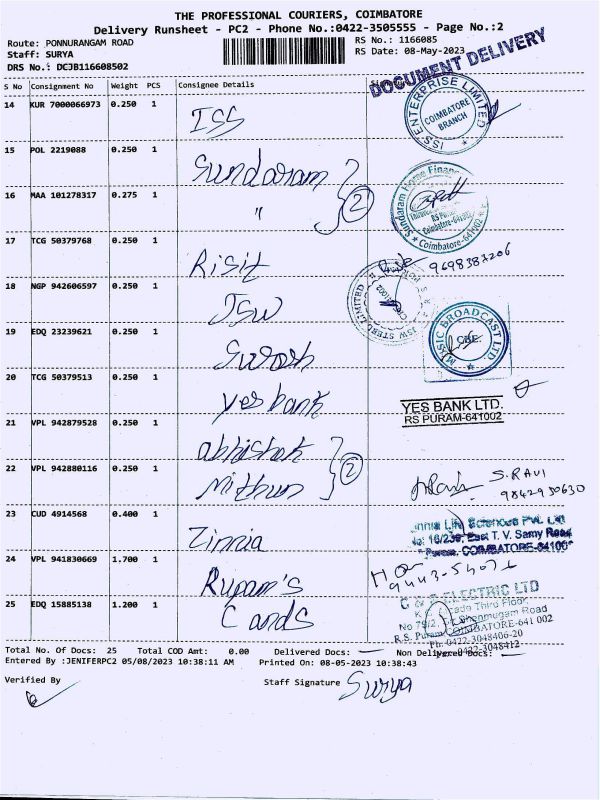 THE PROFESSIONAL COURIERS, COIMBATORE
Delivery Runsheet - PC2 - Phone No.:0422-3505555 - Page No.:2
Route: PONNURANGAM ROAD
RS No.: 1166085
Staff: SURYA
RS Date: 08-May-2023
DRS No.: DCJB116608502
DOCUMENT DELIVERY
S No Consignment No Weight PCS Consignee Details
14 KUR 7000066973 0.250 1 ISS
ISS ENTERPRISE LIMITED
COIMBATORE BRANCH
15 POL 2219088 0.250 1 Sundaram
16 MAA 101278317 0.275 1 " 2
Sundaram Home Finance
RS Puram
Coimbatore-641002
* Coimbatore-641002 *
17 TCG 50379768 0.250 1 Risit
9698383206
18 NGP 942606597 0.250 1 JSW
JSW STEEL LIMITED
19 EDQ 23239621 0.250 1
MUSIC BROADCAST LTD.
CBE.
20 TCG 50379513 0.250 1 yes bank
YES BANK LTD.
RS PURAM-641002
21 VPL 942879528 0.250 1 abhishek
22 VPL 942880116 0.250 1 Mithun 2
S. RAVI
9842930630
23 CUD 4914568 0.400 1 Zinnia
Zinnia Life Sciences Pvt. Ltd
No: 16/239, East T. V. Samy Road
Puram, COIMBATORE-64100
24 VPL 941830669 1.700 1 Rupam's
25 EDQ 15885138 1.200 1 Cands
C & S ELECTRIC LTD
Third Floor,
No 79/2, Shanmugam Road
R.S. Puram COIMBATORE-641 002
Ph: 0422-3048406-20
0422-3048412
Total No. Of Docs: 25 Total COD Amt: 0.00 Delivered Docs: — Non Delivered Docs: —
Entered By :JENIFERPC2 05/08/2023 10:38:11 AM Printed On: 08-05-2023 10:38:43
Verified By
Staff Signature Surya